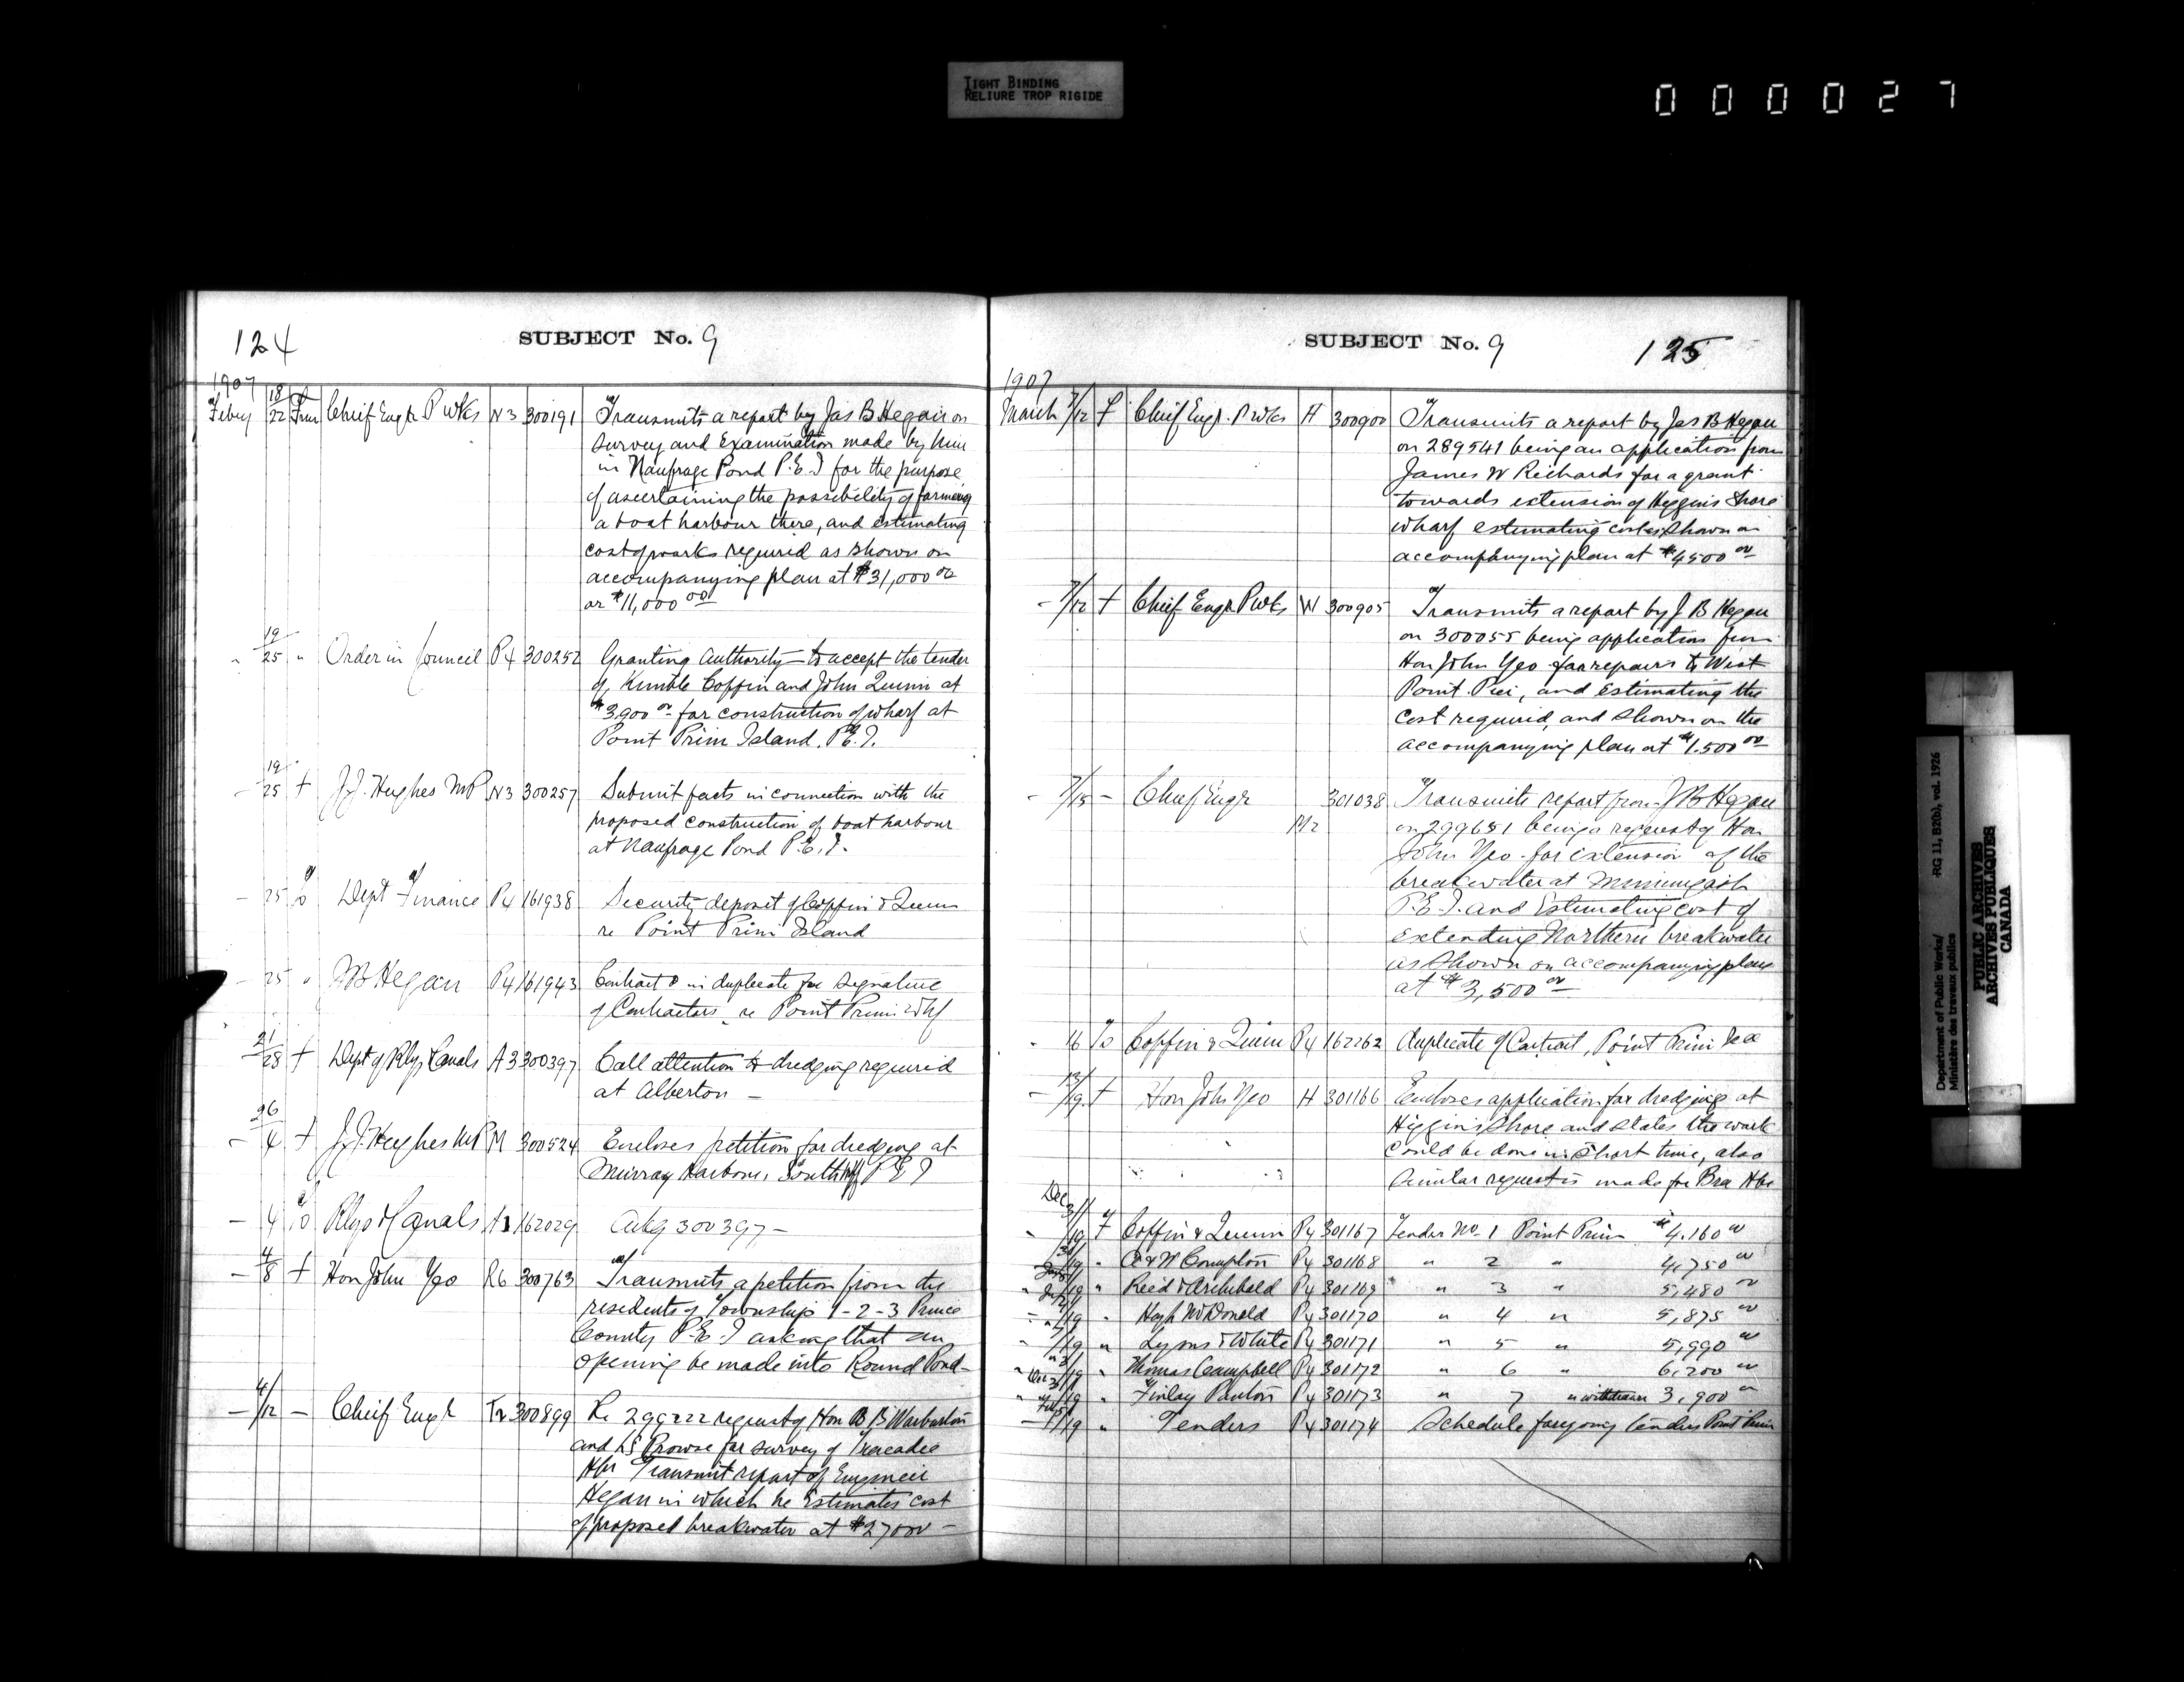 TIGHT BINDING
RELIURE TROP RIGIDE
000027
124
SUBJECT No. 9
1907
Feby 18/22 Chief Engr P Wks N3 300191 Transmits a report by Jas B Hegan on
survey and Examination made by him
in Naufrage Pond P.E.I for the purpose
of ascertaining the possibility of forming
a boat harbour there, and estimating
cost of works required as shown on
accompanying plan at $31,000 00
or $11,000 00
" 19/25 " Order in Council P4 300252 Granting Authority to accept the tender
of Kimble Coffin and John Quinn at
$3900 00 for construction of wharf at
Point Prim Island, P.E.I.
- 19/25 f J.J. Hughes MP N3 300257 Submit facts in connection with the
proposed construction of boat harbour
at Naufrage Pond P.E.I.
- 25 To Dept Finance P4 161938 Security deposit of Coffin & Quinn
re Point Prim Island
- 25 " J B Hegan P4 161943 Contract in duplicate for signature
of Contractors re Point Prim Whf
- 21/28 f Dept of Rlys Canals A3 300397 Call attention to dredging required
at Alberton -
- 26/4 f J.J. Hughes MP M 300524 Encloses petition for dredging at
Murray Harbour, South P E I
- 4 To Rlys & Canals 162029 Ackg 300397 -
- 4/8 f Hon John Yeo R6 300763 Transmits a petition from the
residents of Township 1-2-3 Prince
County P.E.I asking that an
opening be made into Round Pond -
- 4/12 - Chief Engr T2 300899 Re 299222 request of Hon B B Warburton
and LS Prowse for survey of Tracadie
Hbr Transmit report of Engineer
Hegan in which he Estimates cost
of proposed breakwater at $27000 -
SUBJECT No. 9
125
1907
March 7/12 f Chief Engr. P Wks H 300900 Transmits a report by Jas B Hegan
on 289541 being an application from
James W Richards for a grant
towards extension of Higgins Shore
wharf estimating cost as shown on
accompanying plan at $4500 00
- 7/12 f Chief Engr P Wks W 300905 Transmits a report by J B Hegan
on 300055 being application from
Hon John Yeo for repairs to West
Point Pier, and Estimating the
cost required, and shown on the
accompanying plan at $1.500 00
- 7/15 - Chief Engr M2 301038 Transmits report from J B Hegan
on 299651 being a request of Hon
John Yeo for extension of the
breakwater at Miminigash
P.E.I. and Estimating cost of
extending Northern breakwater
as shown on accompanying plan
at $3,500 00
" 16 To Coffin & Quinn P4 162262 Duplicate of Contract, Point Prim
- 13/19 f Hon John Yeo H 301166 Encloses application for dredging at
Higgins Shore and states the work
could be done in short time, also
similar request is made for Brae Hbr
Dec 31/19 f Coffin & Quinn P4 301167 Tender No. 1 Point Prim $4.160 00
" C & W Compton P4 301168 " 2 " 4,750 00
" Reid & Archibald P4 301169 " 3 " 5,480 00
" Hugh McDonald P4 301170 " 4 " 5,875 00
" Lyons & White P4 301171 " 5 " 5,990 00
" Thomas Campbell P4 301172 " 6 " 6,200 00
" Finlay P4 301173 " 7 " withdrawn 3,900 00
" Tenders P4 301174 Schedule foregoing tenders Point Prim
Department of Public Works/
Ministère des travaux publics
RG 11, B2(b), vol. 1926
PUBLIC ARCHIVES
ARCHIVES PUBLIQUES
CANADA